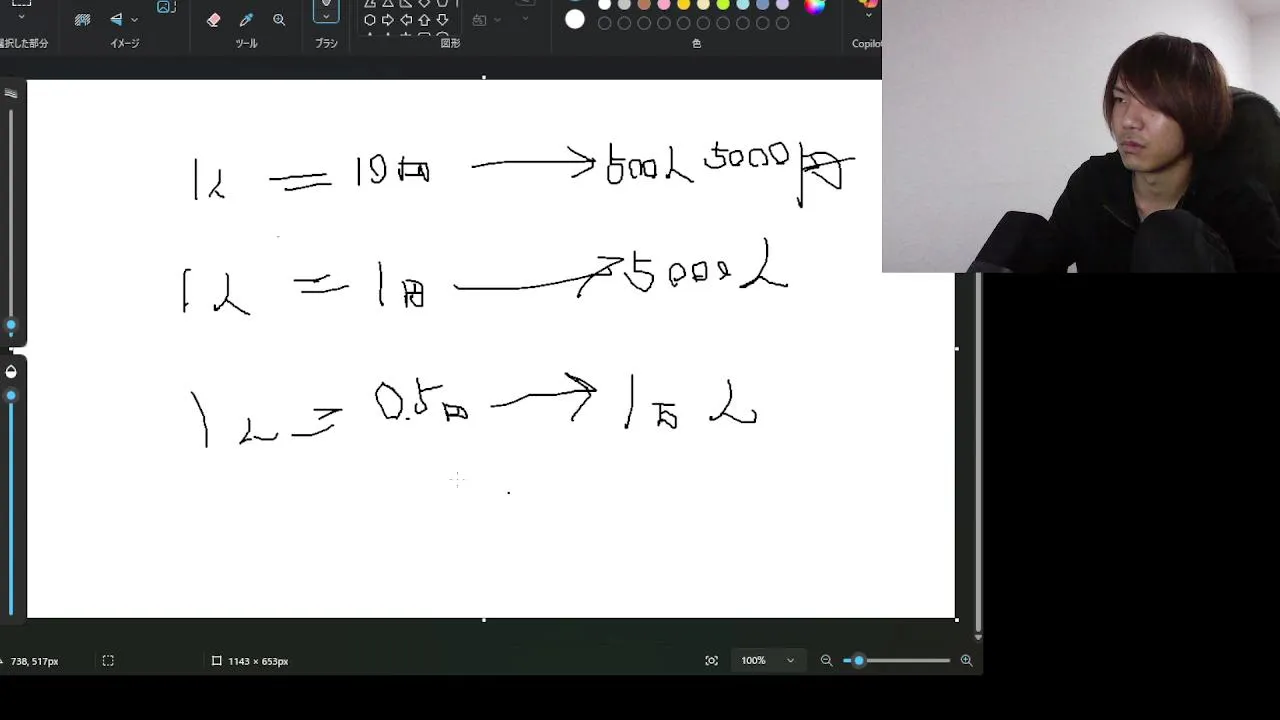 選択した部分
イメージ
ツール
ブラシ
図形
色
Copilot
1人 = 10円 → 500人 5000円
1人 = 1円 → 5000人
1人 = 0.5円 → 1万人
738, 517px
1143 × 653px
100%